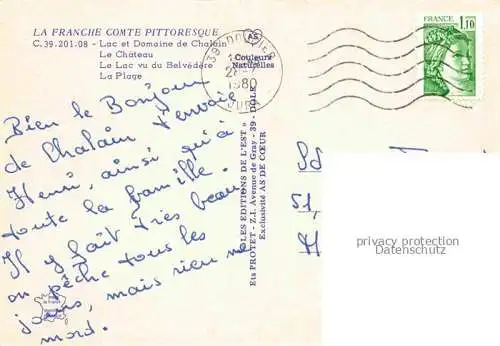 LA FRANCHE COMTE PITTORESQUE
C.39.201.08 - Lac et Domaine de Chalain
Le Château
Le Lac vu du Belvédère
La Plage
AS
Couleurs
Naturelles
39 DOUCIER
1980
JURA
FRANCE
1,10
Bien le Bonjour
de Chalain t'envoie
Henri, ainsi qu'à
toute la famille.
Il y fait très beau
on pêche tous les
jours, mais rien ne
mord.
LES EDITIONS DE L'EST
Ets PROTET - Z.I. Avenue de Gray - 39 - DOLE
Exclusivité AS DE CŒUR
51,
privacy protection
Datenschutz